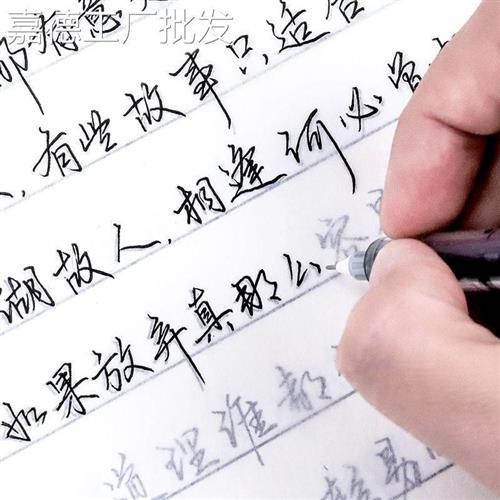 嘉德工厂批发
那有意
有些故事只适合
湖故人,相逢何必曾
如果放弃真那么容
道理谁都